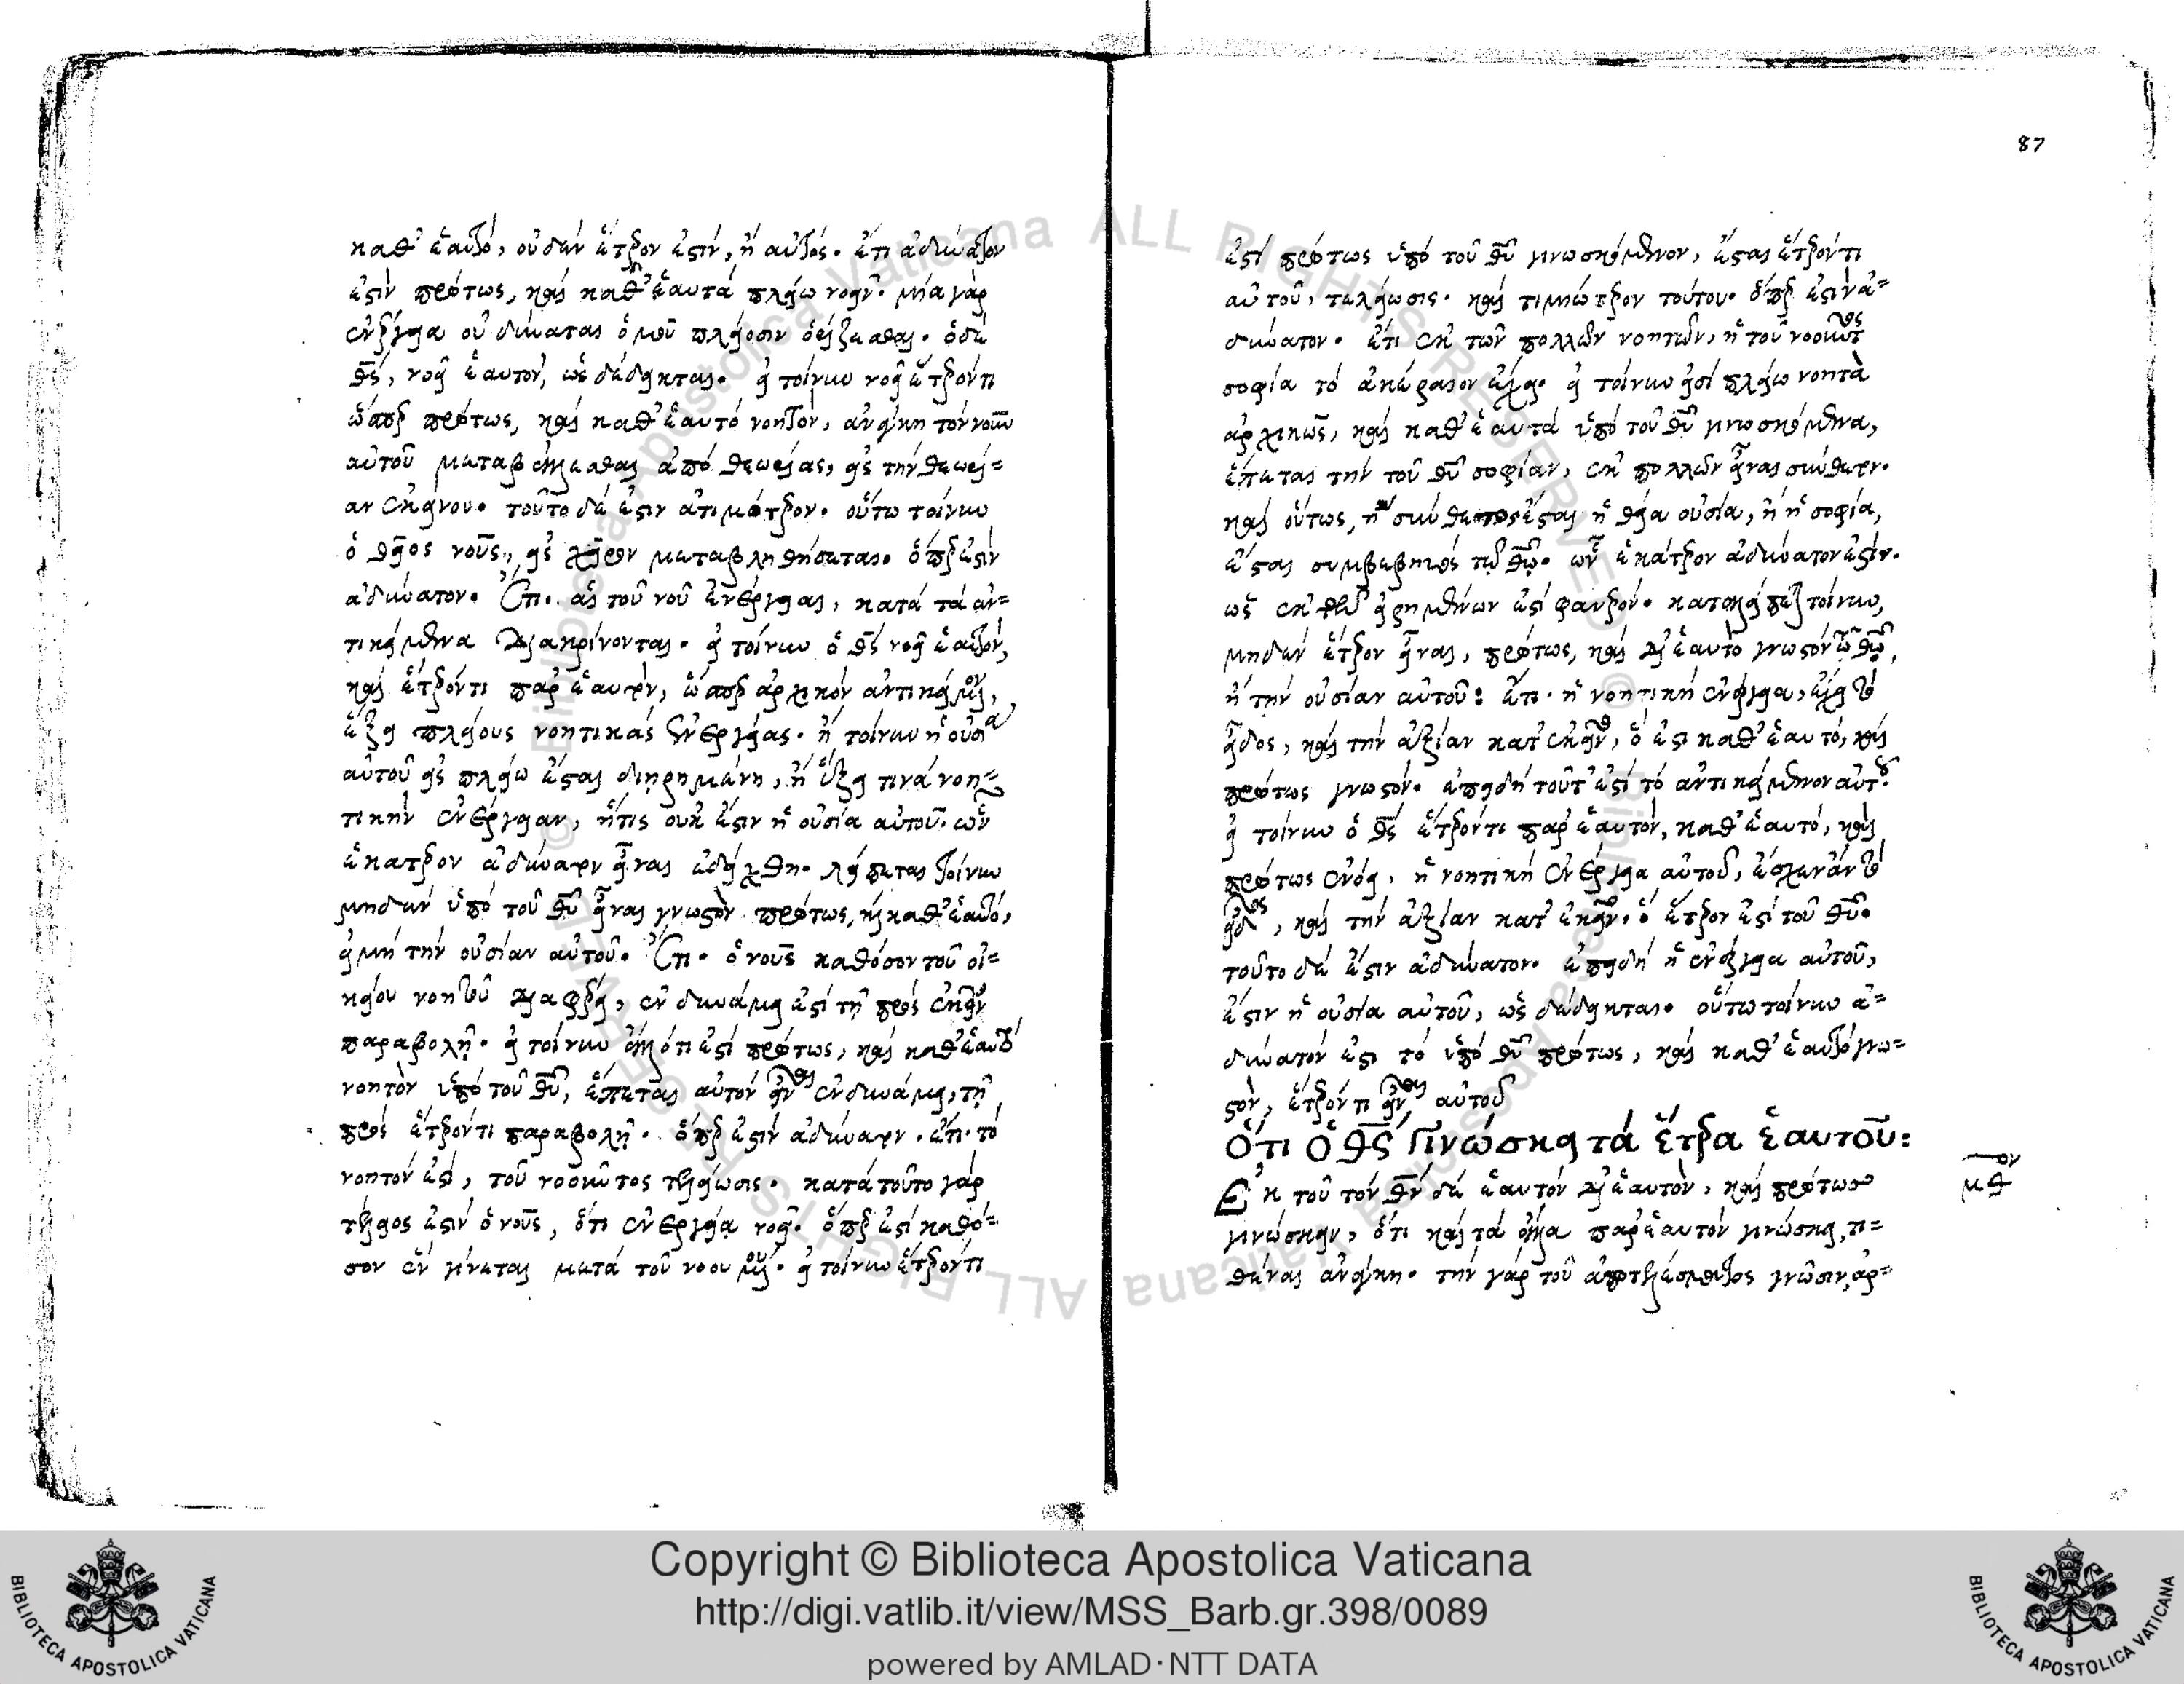 καθ' ἑαυτό, οὐδὲν ἕτερον ἐστὶν, ἢ αὐτός. ἔτι ἀδύνατον
ἐστὶν πρώτως, καὶ καθ' ἑαυτὰ πλείω νοεῖν. μία γὰρ
ἐνέργεια οὐ δύναται ὁμοῦ πλείοσιν ὁρίζεσθαι. ὁ δὲ
θς, νοεῖ ἑαυτὸν, ὡς δέδεικται. εἰ τοίνυν νοεῖ ἕτερόν τι
ὥσπερ πρώτως, καὶ καθ' ἑαυτὸ νοητὸν, ἀνάγκη τὸν νοῦν
αὐτοῦ μεταβάλλεσθαι ἀπὸ θεωρίας, εἰς τὴν θεωρί=
αν ἐκείνου. τοῦτο δέ ἐστιν ἀτιμότερον. οὕτω τοίνυν
ὁ θεῖος νοῦς, εἰς χεῖρον μεταβληθήσεται. ὅπερ ἐστὶν
ἀδύνατον. Ἔτι. αἱ τοῦ νοῦ ἐνέργειαι, κατὰ τὰ ἀν=
τικείμενα διακρίνονται. εἰ τοίνυν ὁ θς νοεῖ ἑαυτὸν,
καὶ ἕτερόν τι παρ' ἑαυτὸν, ὥσπερ ἀρχικὸν ἀντικείμενον,
ἕξει πλείους νοητικὰς ἐνεργείας. ἢ τοίνυν ἡ οὐσία
αὐτοῦ εἰς πλείω ἔσται διῃρημένη, ἢ ἕξει τινὰ νοη=
τικὴν ἐνέργειαν, ἥτις οὐκ ἔστιν ἡ οὐσία αὐτοῦ. ὧν
ἑκάτερον ἀδύνατον εἶναι ἐδείχθη. λείπεται τοίνυν
μηδὲν ὑπὸ τοῦ θῦ εἶναι γνωστὸν πρώτως, καὶ καθ' ἑαυτό,
εἰ μὴ τὴν οὐσίαν αὐτοῦ. Ἔτι. ὁ νοῦς καθόσον τοῦ οἰ=
κείου νοητοῦ διαφέρει, ἐν δυνάμει ἐστὶ τῇ πρὸς ἐκεῖνο
παραβολῇ. εἰ τοίνυν ἄλλό τι ἐστὶ πρώτως, καὶ καθ' ἑαυτὸ
νοητὸν ὑπὸ τοῦ θῦ, ἕπεται αὐτὸν εἶναι ἐν δυνάμει, τῇ
πρὸς ἕτερόν τι παραβολῇ. ὅπερ ἐστὶν ἀδύνατον. ἔτι. τὸ
νοητόν ἐστι, τοῦ νοοῦντος τελείωσις. κατὰ τοῦτο γὰρ
τέλειος ἐστὶν ὁ νοῦς, ὅτι ἐνεργείᾳ νοεῖ. ὅπερ ἐστὶ καθό=
σον ἓν γίνεται μετὰ τοῦ νοουμένου. εἰ τοίνυν ἕτερόν τι
87
ἐστὶ πρώτως ὑπὸ τοῦ θῦ γινωσκόμενον, ἔσται ἕτερόν τι
αὐτοῦ, τελείωσις. καὶ τιμιώτερον τούτου. ὅπερ ἐστὶν ἀ=
δύνατον. ἔτι ἐκ τῶν πολλῶν νοητῶν, ἡ τοῦ νοοῦντος
σοφία τὸ ἀκέραιον ἔχει. εἰ τοίνυν εἰσὶ πλείω νοητὰ
ἀρχικῶς, καὶ καθ' ἑαυτὰ ὑπὸ τοῦ θῦ γινωσκόμενα,
ἕπεται τὴν τοῦ θῦ σοφίαν, ἐκ πολλῶν εἶναι σύνθετον.
καὶ οὕτως, ἢ σύνθετος ἔσται ἡ θεία οὐσία, ἢ ἡ σοφία,
ἔσται συμβεβηκὸς τῷ θῷ. ὧν ἑκάτερον ἀδύνατον ἐστίν.
ὡς ἐκ τῶν εἰρημένων ἐστὶ φανερόν. καταλείπεται τοίνυν,
μηδὲν ἕτερον εἶναι, πρώτως, καὶ δι' ἑαυτὸ γνωστὸν τῷ θῷ,
ἢ τὴν οὐσίαν αὐτοῦ: ἔτι. ἡ νοητικὴ ἐνέργεια, ἔχει τὸ
εἶδος, καὶ τὴν ἀξίαν κατ' ἐκεῖνο, ὅ ἐστι καθ' ἑαυτό, καὶ
πρώτως γνωστόν. ἐπειδὴ τοῦτ' ἐστὶ τὸ ἀντικείμενον αὐτοῦ.
εἰ τοίνυν ὁ θς ἕτερόν τι παρ' ἑαυτὸν, καθ' ἑαυτό, καὶ
πρώτως ἐνόει, ἡ νοητικὴ ἐνέργεια αὐτοῦ, ἔσχεν ἂν τὸ
εἶδος, καὶ τὴν ἀξίαν κατ' ἐκεῖνο, ὃ ἕτερον ἐστὶ τοῦ θῦ.
τοῦτο δέ ἐστιν ἀδύνατον. ἐπειδὴ ἡ ἐνέργεια αὐτοῦ,
ἐστὶν ἡ οὐσία αὐτοῦ, ὡς δέδεικται. οὕτω τοίνυν ἀ=
δύνατόν ἐστι τὸ ὑπὸ θῦ πρώτως, καὶ καθ' ἑαυτὸ γνω=
στὸν, ἕτερόν τι εἶναι αὐτοῦ
Ὅτι ὁ θς Γινώσκει τὰ ἕτερα ἑαυτοῦ:
μθον
Ἐκ τοῦ τὸν θν δὲ ἑαυτὸν δι' ἑαυτὸν, καὶ πρώτως
γινώσκειν, ὅτι καὶ τὰ ἄλλα παρ' ἑαυτὸν γινώσκει, τι=
θέναι ἀνάγκη. τὴν γὰρ τοῦ ἀποτελέσματος γνῶσιν, ἀρ=
Copyright © Biblioteca Apostolica Vaticana
http://digi.vatlib.it/view/MSS_Barb.gr.398/0089
powered by AMLAD·NTT DATA
BIBLIOTECA APOSTOLICA VATICANA
BIBLIOTECA APOSTOLICA VATICANA
© Biblioteca Apostolica Vaticana ALL RIGHTS RESERVED
© Biblioteca Apostolica Vaticana ALL RIGHTS RESERVED